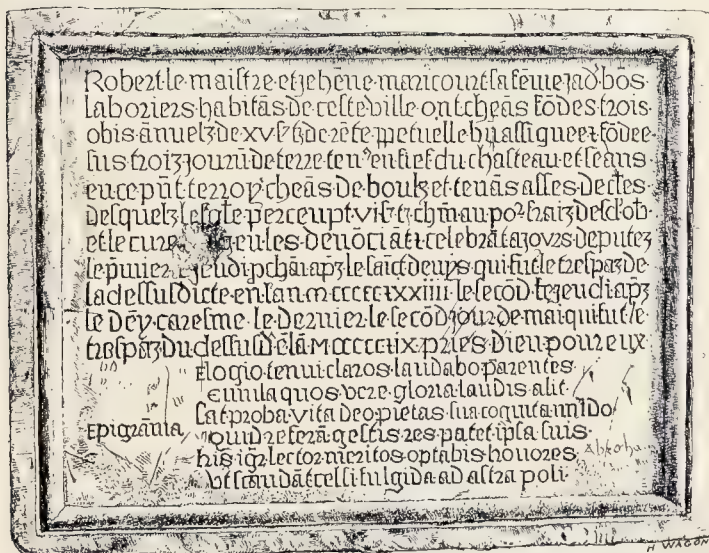 Robert·le·maistre·et·jehēne·maricourt·sa fēme·jad·bōs·
laboriers·habitās·de ceste ville·ont·cheās fōdes·trois·
obis·ānuelz·de·xv·s·tz·de·rēte·ppetuelle·
sus troiz journ̄·de terre·ten⁹ en fief du chasteau·et seans·
en ce pn̄t·terroy·cheās·de·boulz·et·tenās·
desquelz·perceupt·au·fraiz
et le cure les·denōciāt·celebrāt·a jours·deputez
le jeudi·pchāī·apz·le saīct·denys·qui fut le trespaz de·
la dessusdicte·en·lan·m·cccccxxiiii·le secōd·jeudi apz
le caresme·le·dernier·le secōd·jour·de·mai·qui fut le
trespaz du·dessusd·elā·M·cccccлix·pries·dieu pour eux
Elogio·tenui·claros·laudabo·parentes
quos·vere·gloria·laudis·alit·
Sat·proba·vita deo·pietas·sua
Epigrāmia
Quid referā·gestis·res·patet·ipsa suis
his·igr̄·lector·meritos·optabis·honores
Vt scandāt·celsi·fulgida·ad·astra poli·
WAGON